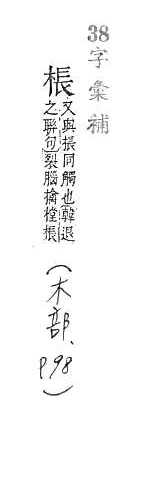 38字彙補
棖
又與掁同觸也韓退
之聯句裂腦擒摚掁
(木部、P98)